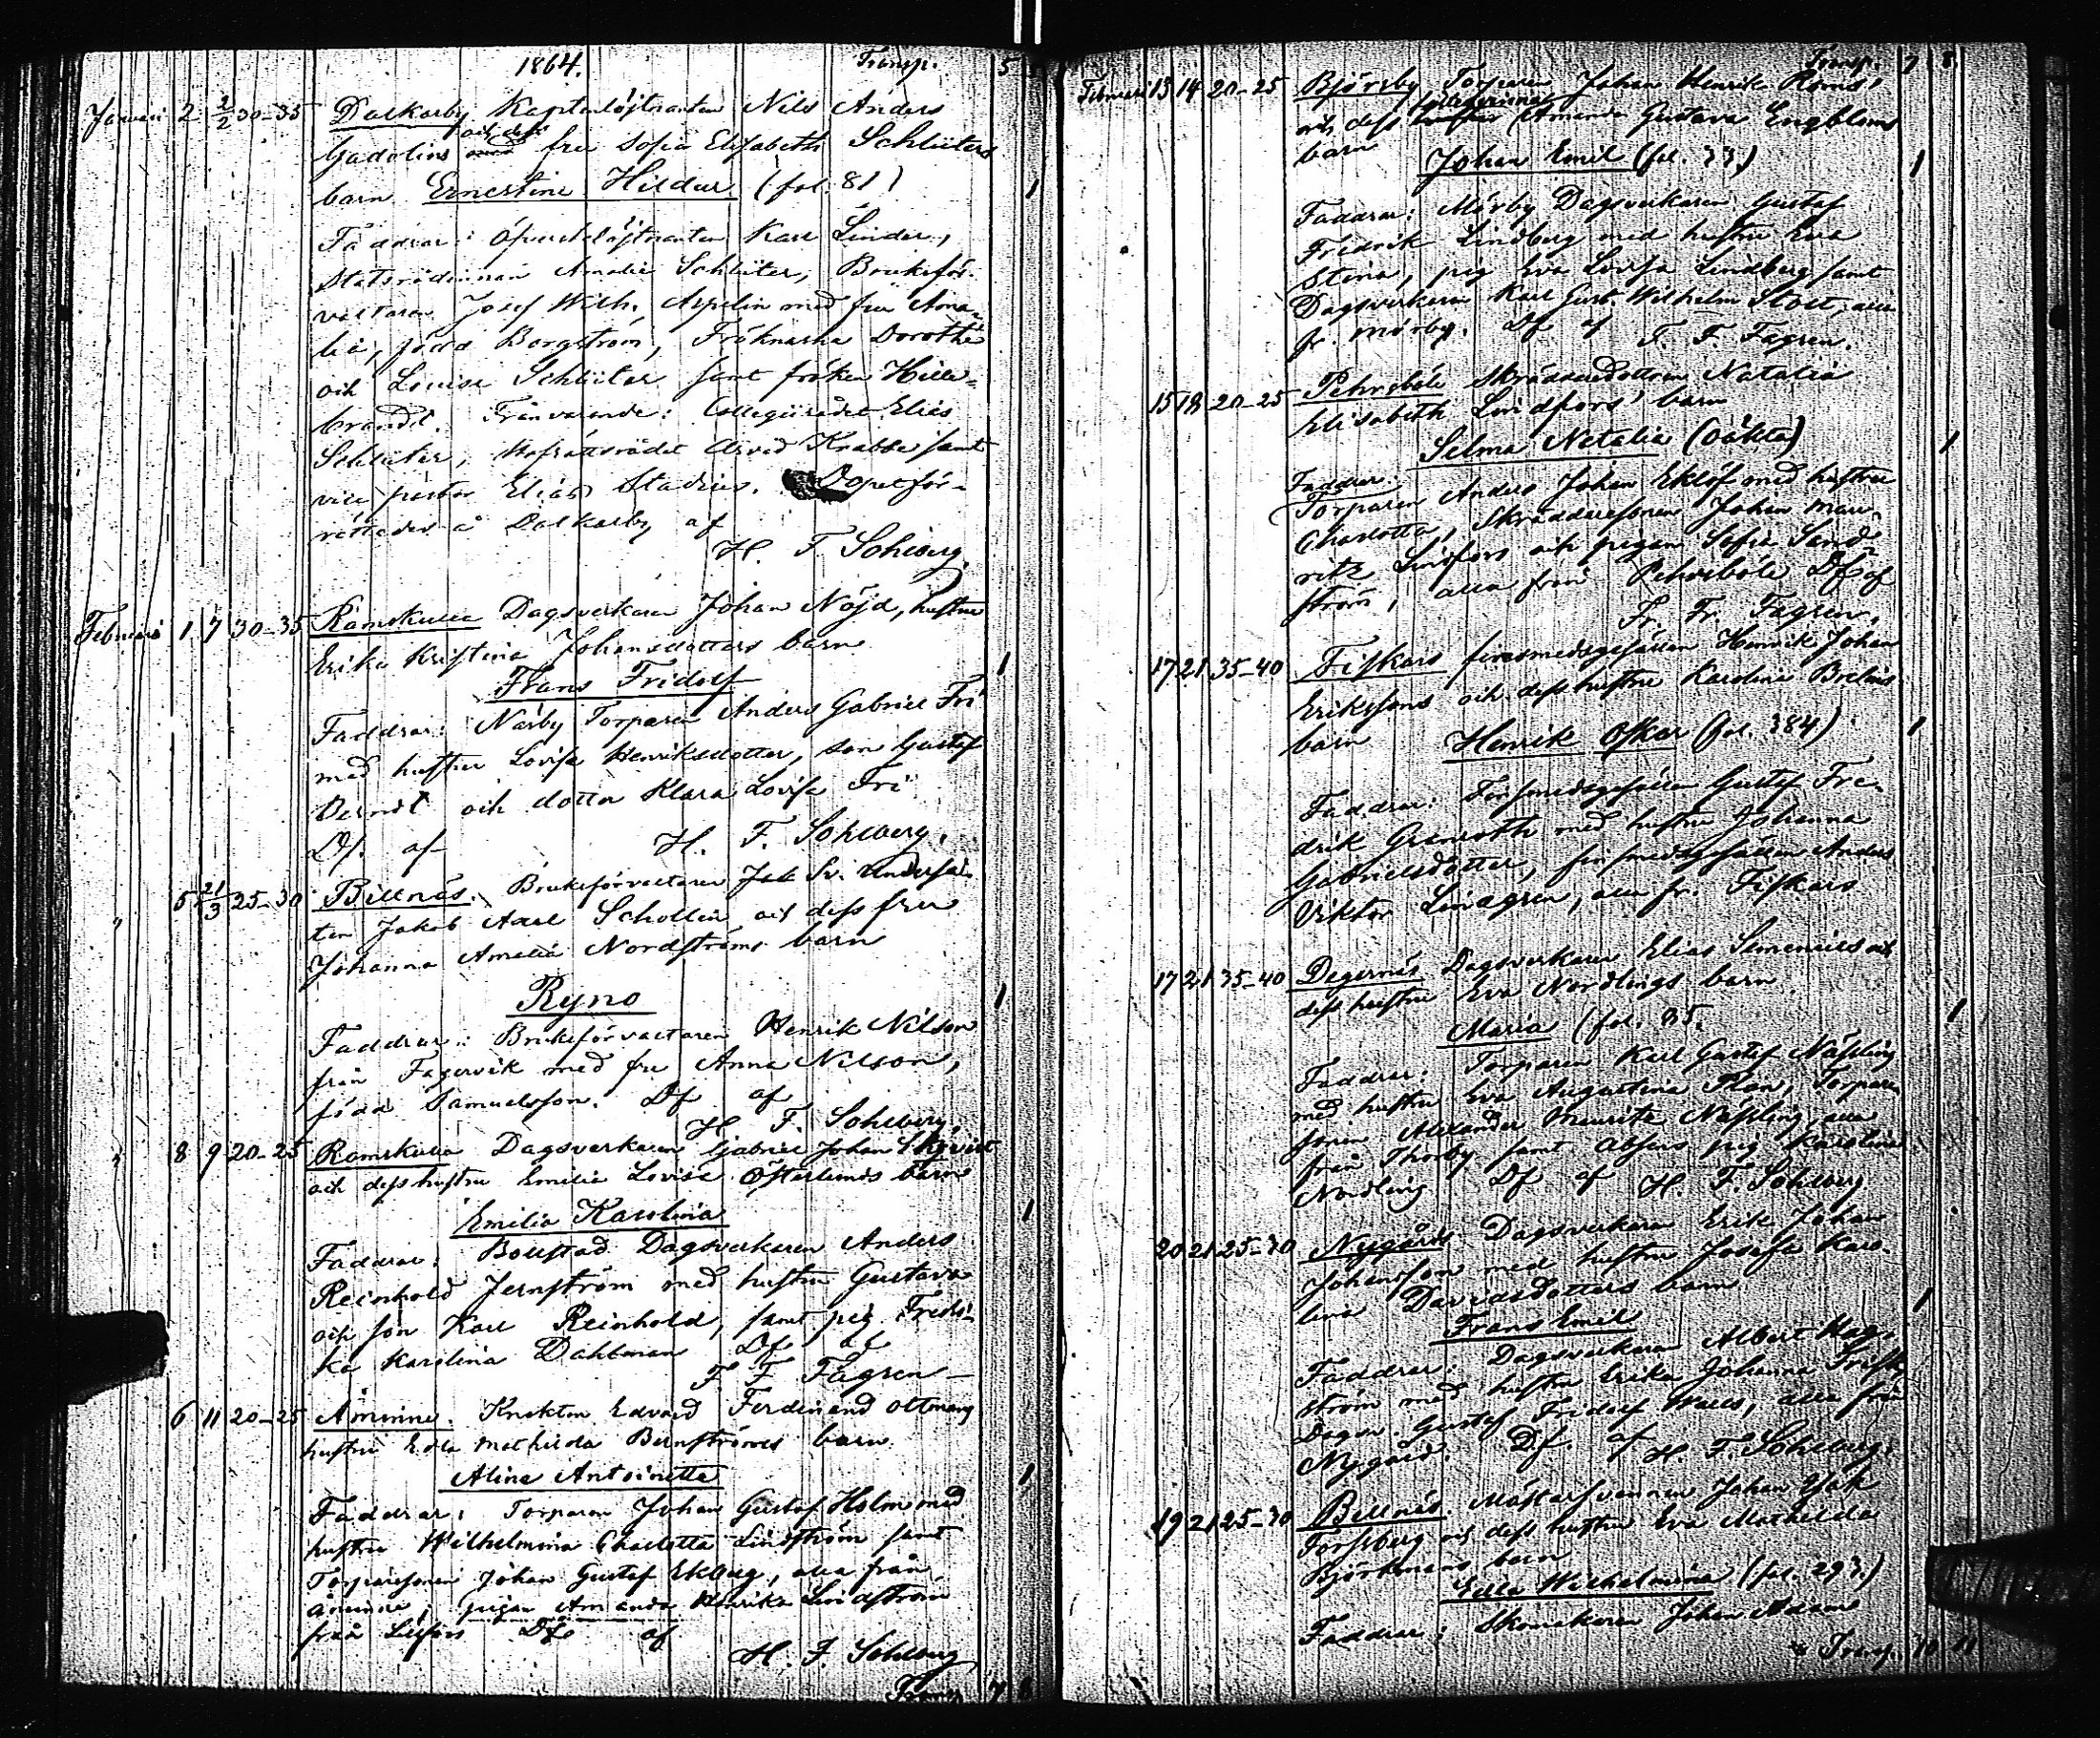 1864. Transp. 5
Januari 2 2/2 30-35 Dalkarby Kaptenlöjtnanten Nils Anders
och dess
Gadolins med fru Sofia Elisabeth Schlüters
barn Ernestine Hildur (fol. 81) 1
Faddrar: Öfverstelöjtnanten Karl Linder,
Statsrådinnan Amalie Schlüter, Bruksför-
valtaren Josef Wilh. Aspelin med fru Ama-
lia, född Borgström, Fröknarna Dorothé
och Louise Schlüter samt fröken Hille-
brandt. Frånvarande: Collegiirådet Elias
Schlüter, Hofrättsrådet Arvid Krabbe samt
vice pastor Elias Stadius. Dopet för-
rättades å Dalkarby af
H. F. Sohlberg.
Februari 1 7 30-35 Ramskulla Dagsverkaren Johan Nöjd, hustru
Erika Kristina Johansdotters barn
Frans Fridolf 1
Faddrar: Närby Torparen Anders Gabriel Fri
med hustru Lovisa Henriksdotter, son Gustaf
Berndt och dotter Klara Lovisa Fri
Df. af H. F. Sohlberg.
" 5 21/3 25-30 Billnäs. Bruksförvaltaren
ten Jakob Axel Schollin och dess fru
Johanna Amalia Nordströms barn
Ryno 1
Faddrar: Bruksförvaltaren Henrik Nilson
från Fagervik med fru Anna Nilson,
född Samuelsson. Df af
H. F. Sohlberg.
" 8 9 20-25 Ramskulla Dagsverkaren Gabriel Johan
och dess hustru Emilia Lovisa Österlunds barn
Emilia Karolina 1
Faddrar: Bollstad Dagsverkaren Anders
Reinhold Jernström med hustru Gustava
och son Karl Reinhold, samt pig. Fredri-
ka Karolina Dahlman Df af
F. F. Fagren
6 11 20-25 Åminne. Knekten Edvard Ferdinand Ottmans
hustru Edla Mathilda Bernströms barn
Alina Antoinetta 1
Faddrar: Torparen Johan Gustaf Holm med
hustru Wilhelmina Charlotta Lindström samt
Torparesonen Johan Gustaf Ekberg, alla från
Åminne, pigan Amanda Henrika Lindström
från Df af
H. F. Sohlberg
Transp. 7 8
Transp. 7 8
Februari 13 14 20-25 Björsby Torparen Johan Henrik Roms,
och dess Amanda Gustava Engbloms
barn
Johan Emil (fol. 33.) 1
Faddrar: Mörby Dagsverkaren Gustaf
Fredrik Lindberg med hustru Eva
Stina, pig Eva Lovisa Lindberg samt
Dagsverkaren Karl Gust. Wilhelm Stolt, alla
fr. Mörby. Df af F. F. Fagren.
15 18 20-25 Pehrsböle Skräddaredottren Natalia
Elisabeth Lindfors' barn
Selma Natalia (oäkta) 1
Faddrar:
Torparen Anders Johan Eklöf med hustru
Charlotta, Skräddaresonen Johan Mau-
ritz Lindfors och pigan Sofia Sand-
ström, alla från Pehrsböle Df af
Fr. Fr. Fagren.
17 21 35-40 Fiskars finsmedsgesällen Henrik Johan
Erikssons och dess hustru Karolina Brelins
barn Henrik Oskar (fol. 384) 1
Faddrar: Forssmedsgesällen Gustaf Fre-
drik Granroth med hustru Johanna
Gabrielsdotter, finsmedsgesällen Anders
Viktor Lindgren, alla fr. Fiskars
17 21 35-40 Degernäs Dagsverkaren Elias Simenius och
dess hustru Eva Nordlings barn
Maria (fol. 95. 1
Faddrar: Torparen Karl Gustaf Nässling
med hustru Eva Augustina Plan, Torpare
sonen Alexander Mauritz Nässling, alla
från Thorby samt absens pig Karolina
Nordling Df af H. F. Sohlberg
20 21 25-30 Nygård Dagsverkaren Erik Johan
Johansson med hustru Josefa Karo-
lina Davidsdotters barn
Frans Emil 1
Faddrar: Dagsverkaren Albert Hag-
ström med hustru Erika Johanna Frisk,
Dagsv. Gustaf Fridolf Walls, alla från
Nygård. Df. af H. F. Sohlberg.
19 21 25-30 Billnäs. Mästersvennen Johan Isak
Forssberg och dess hustru Eva Mathilda
Björkmans barn
Edla Wilhelmina (fol. 293.)
Faddrar: Skomakaren Johan Adam
Transp. 10 11